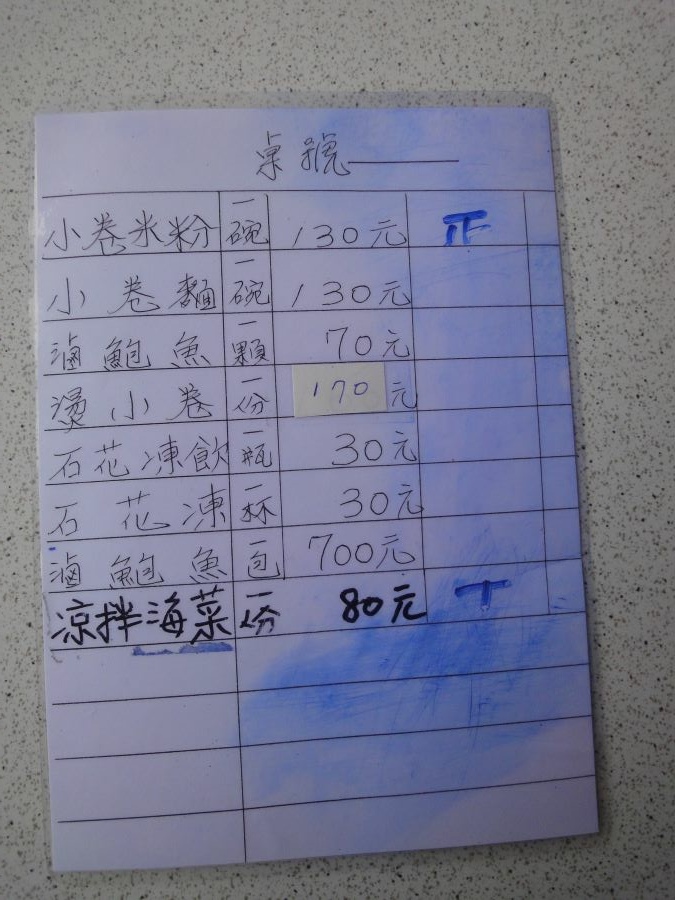 桌號
小卷米粉 一碗 130元 正
小卷麵 一碗 130元
滷鮑魚 一顆 70元
燙小卷 一份 170元
石花凍飲 一瓶 30元
石花凍 一杯 30元
滷鮑魚 一包 700元
凉拌海菜 一份 80元 丅